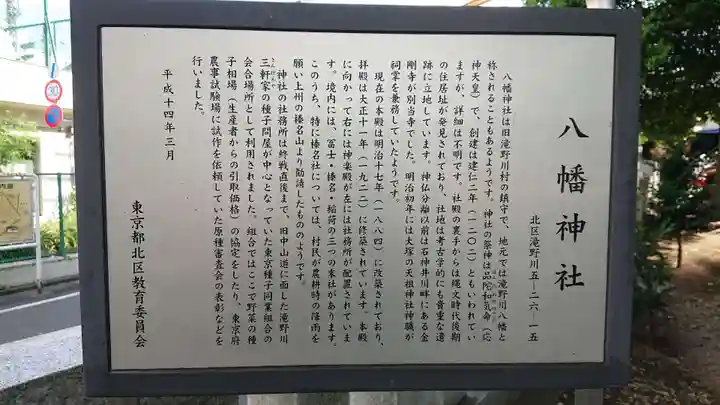 八幡神社
北区滝野川五-二六-一五
八幡神社は旧滝野川村の鎮守で、地元では滝野川八幡と
称されることもあるようです。神社の祭神は品陀和気命（応
神天皇）で、創建は建仁二年（一二〇二）ともいわれてい
ますが、詳細は不明です。社殿の裏手からは縄文時代後期
の住居址が発見されており、社地は考古学的にも貴重な遺
跡に立地しています。神仏分離以前は石神井川畔にある金
剛寺が別当寺でした。明治初年には大塚の天祖神社神職が
祠掌を兼務していたようです。
現在の本殿は明治十七年（一八八四）に改築されており、
拝殿は大正十一年（一九二二）に修築されています。本殿
に向かって右には神楽殿が左には社務所が配置されていま
す。境内には、冨士・榛名・稲荷の三つの末社があります。
このうち、特に榛名社については、村民が農耕時の降雨を
願い上州の榛名山より勧請したもののようです。
神社の社務所は終戦直後まで、旧中山道に面した滝野川
三軒家の種子問屋が中心となっていた東京種子同業組合の
会合場所として利用されました。組合ではここで野菜の種
子相場（生産者からの引取価格）の協定をしたり、東京府
農事試験場に試作を依頼していた原種審査会の表彰などを
行いました。
平成十四年三月
東京都北区教育委員会
30